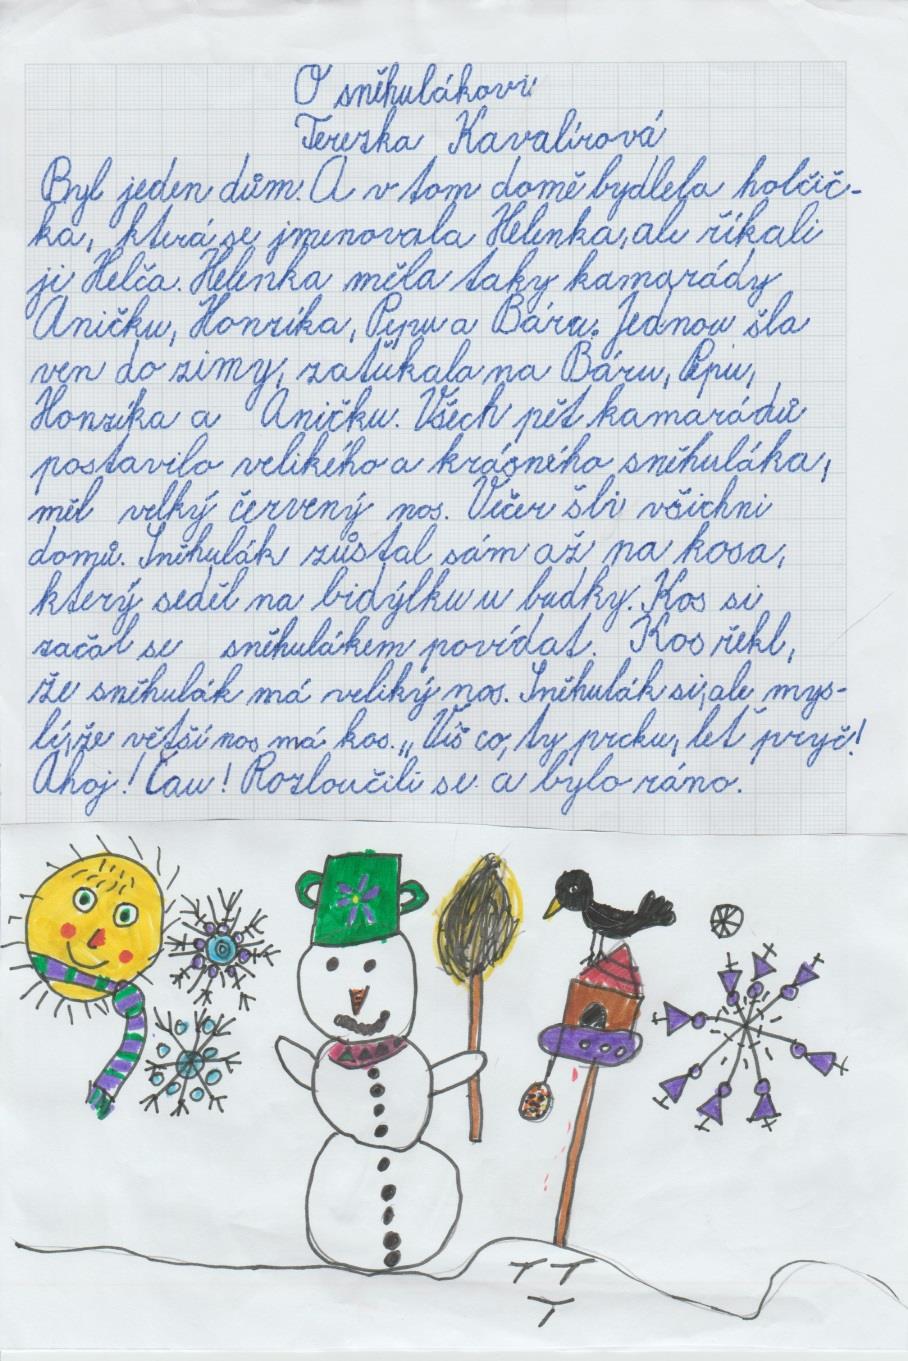 O sněhulákovi
Terezka Kavalírová
Byl jeden dům. A v tom domě bydlela holčič-
ka, která se jmenovala Helenka, ale říkali
ji Helča. Helenka měla taky kamarády
Aničku, Honzíka, Pepu a Báru. Jednou šla
ven do zimy, zaťukala na Báru, Pepu,
Honzíka a Aničku. Všech pět kamarádů
postavilo velikého a krásného sněhuláka,
měl velký červený nos. Večer šli všichni
domů. Sněhulák zůstal sám až na kosa,
který seděl na bidýlku u budky. Kos si
začal se sněhulákem povídat. Kos řekl,
že sněhulák má veliký nos. Sněhulák si, ale mys-
lí, že větší nos má kos. „Víš co, ty prcku, leť pryč!
Ahoj! Čau! Rozloučili se a bylo ráno.